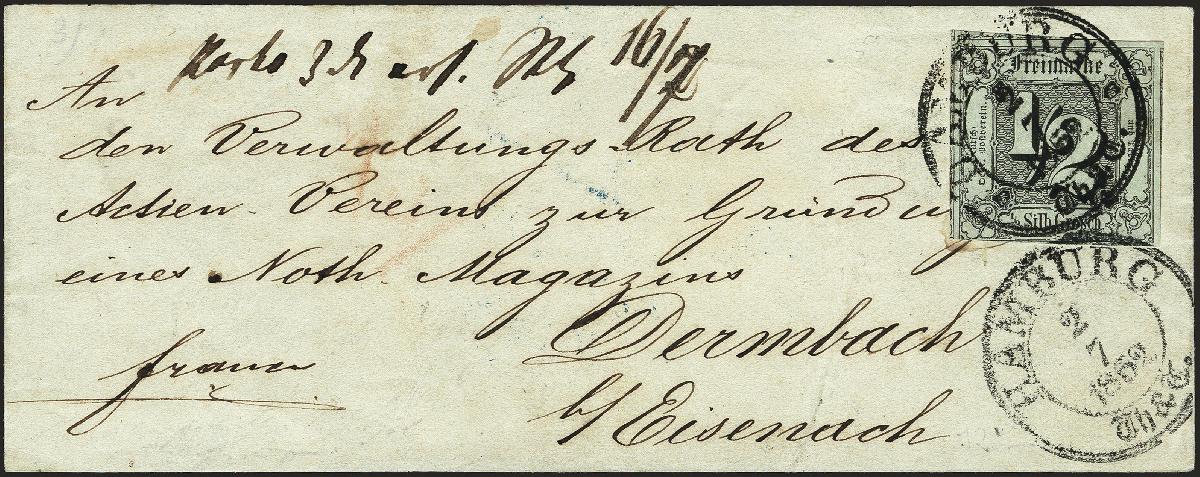 Porto 3 16/7
An
den Verwaltungs-Rath des
Actien-Vereins zur Gründung
eines Noth-Magazins
Dermbach
b/ Eisenach
franco
Freimarke
1/2
½ Silb. Grosch
HAMBURG
2 7 1862
Th&T.
HAMBURG
2
7
1862
Th&T.